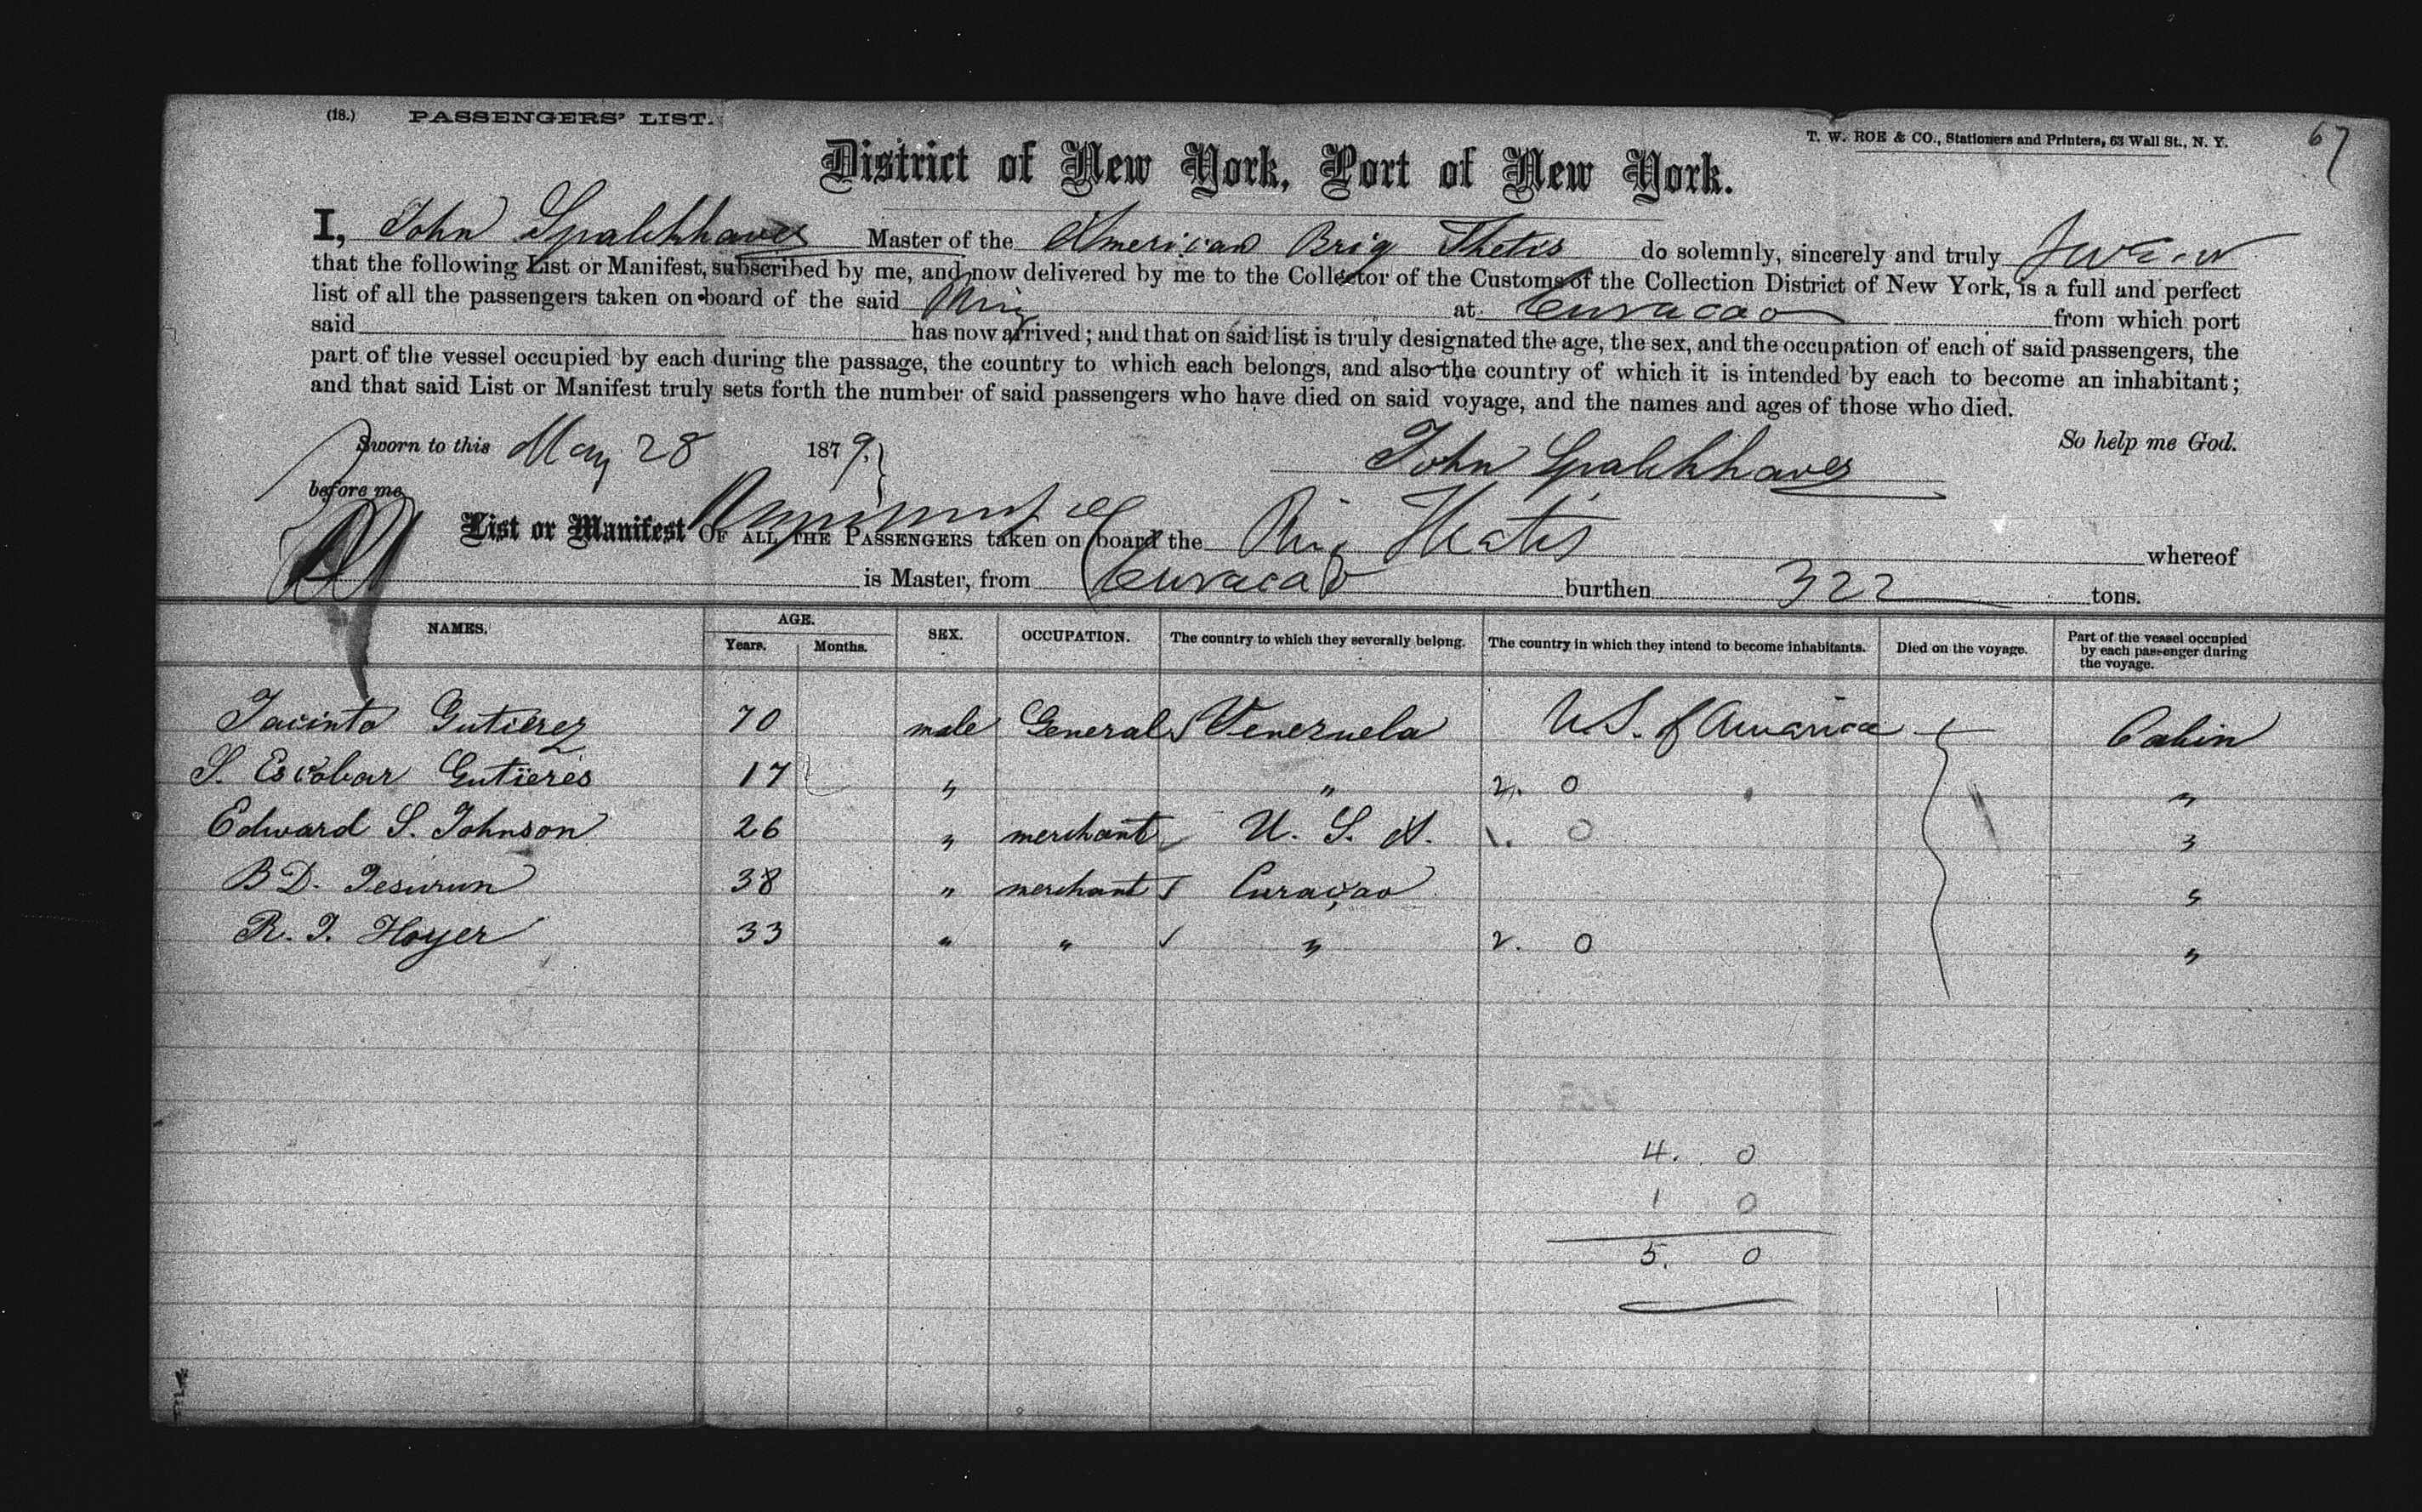 (18.) PASSENGERS' LIST.
T. W. ROE & CO., Stationers and Printers, 63 Wall St., N. Y.
67
District of New York, Port of New York.
I, John Master of the American Brig Thetis do solemnly, sincerely and truly swear
that the following List or Manifest, subscribed by me, and now delivered by me to the Collector of the Customs of the Collection District of New York, is a full and perfect
list of all the passengers taken on board of the said Brig at Curacao from which port
said has now arrived; and that on said list is truly designated the age, the sex, and the occupation of each of said passengers, the
part of the vessel occupied by each during the passage, the country to which each belongs, and also the country of which it is intended by each to become an inhabitant;
and that said List or Manifest truly sets forth the number of said passengers who have died on said voyage, and the names and ages of those who died.
So help me God.
Sworn to this May 28 1879,
John
before me
List or Manifest OF ALL THE PASSENGERS taken on board the Brig Thetis whereof
is Master, from Curacao burthen 322 tons.
NAMES. AGE. Years. Months. SEX. OCCUPATION. The country to which they severally belong. The country in which they intend to become inhabitants. Died on the voyage. Part of the vessel occupied by each passenger during the voyage.
Jacinto Gutierez 70 male General Venezuela U S. of America Cabin
S. Escobar Gutieres 17 " " 2. 0 "
Edward S. Johnson 26 " merchant U. S. A. 1. 0 "
B D. Jesurun 38 " merchant Curaçao "
R. J. Hoyer 33 " " " 2. 0 "
4. 0
1 0
5. 0